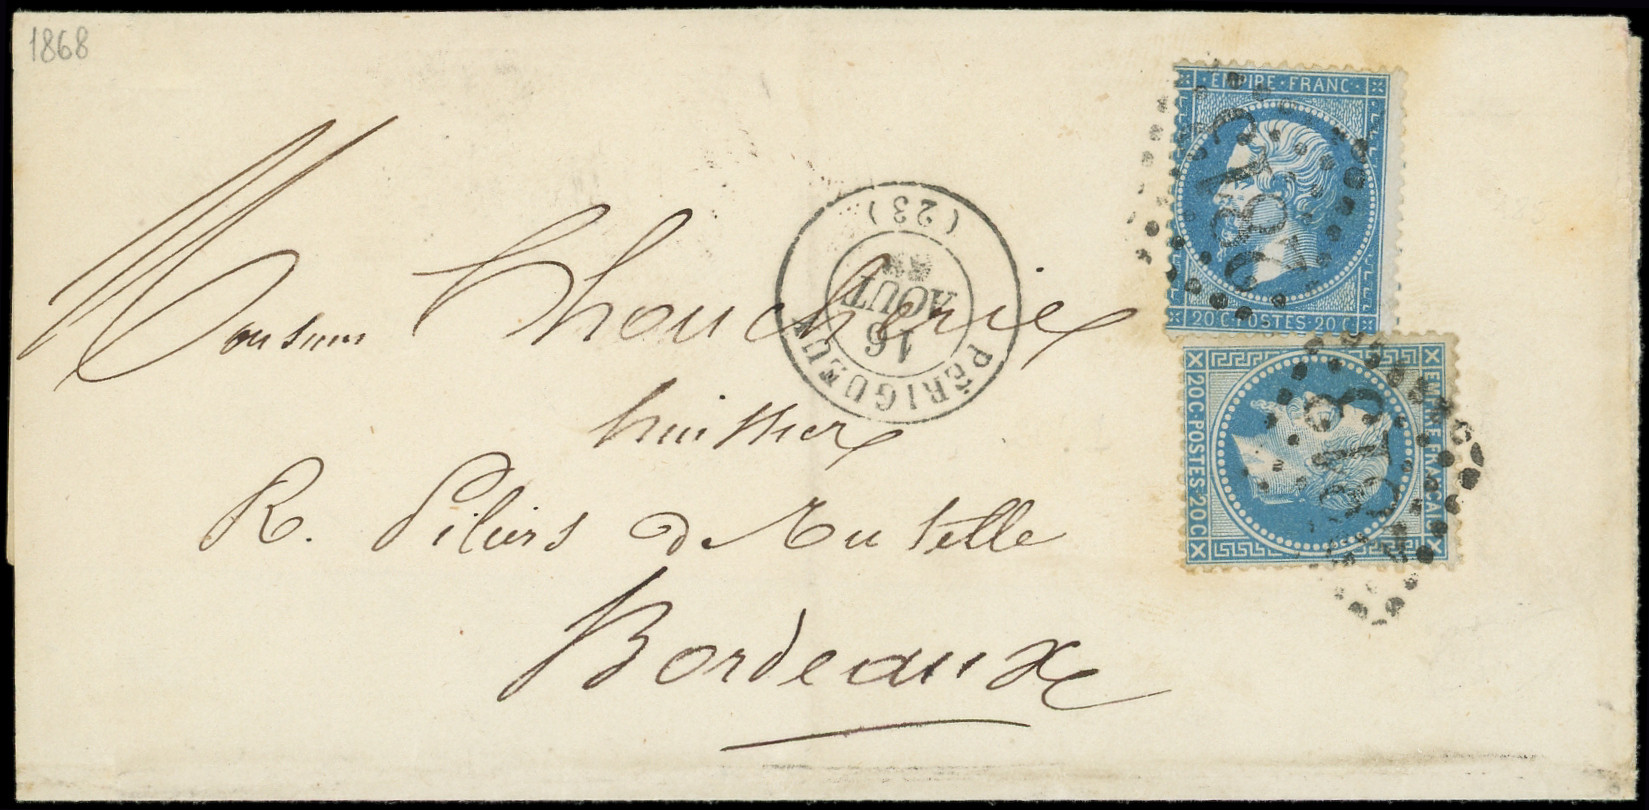 1868
EMPIRE · FRANC ·
20 C · POSTES · 20 C
2813
PÉRIGUEUX
16
AOUT
68
(23)
EMPIRE FRANÇAIS
20 C · POSTES 20 C
2813
Monsieur Choucherie
huissier
R. Piliers de Tutelle
Bordeaux